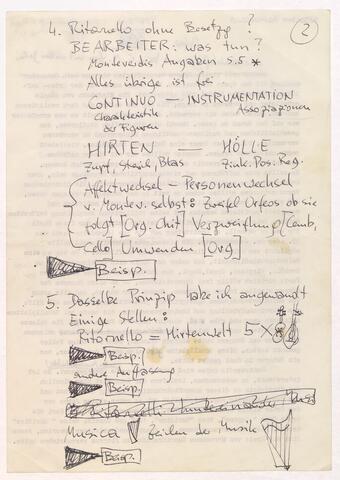 4. Ritornello ohne Besetzg ?
2
BEARBEITER: was tun?
Monteverdis Angaben S.5 *
Alles übrige ist frei.
CONTINUO — INSTRUMENTATION
Charakteristik Assoziazionen
der Figuren
HIRTEN — HÖLLE
Zupf, Streich, Blas Zink. Pos. Reg.
Affektwechsel – Personenwechsel
v. Montev. selbst: Zweifel Orfeos ob sie
folgt [Org. Chit] Verzweiflung [Cemb,
Cello] Umwenden [Org]
Beisp.
5. Dasselbe Prinzip habe ich angewandt
Einige Stellen:
Ritornello = Hirtenwelt 5 x
Beisp.
andere Auffassung
Beisp.
Ritornelli
Musica Zeilen der Musik
Beisp.